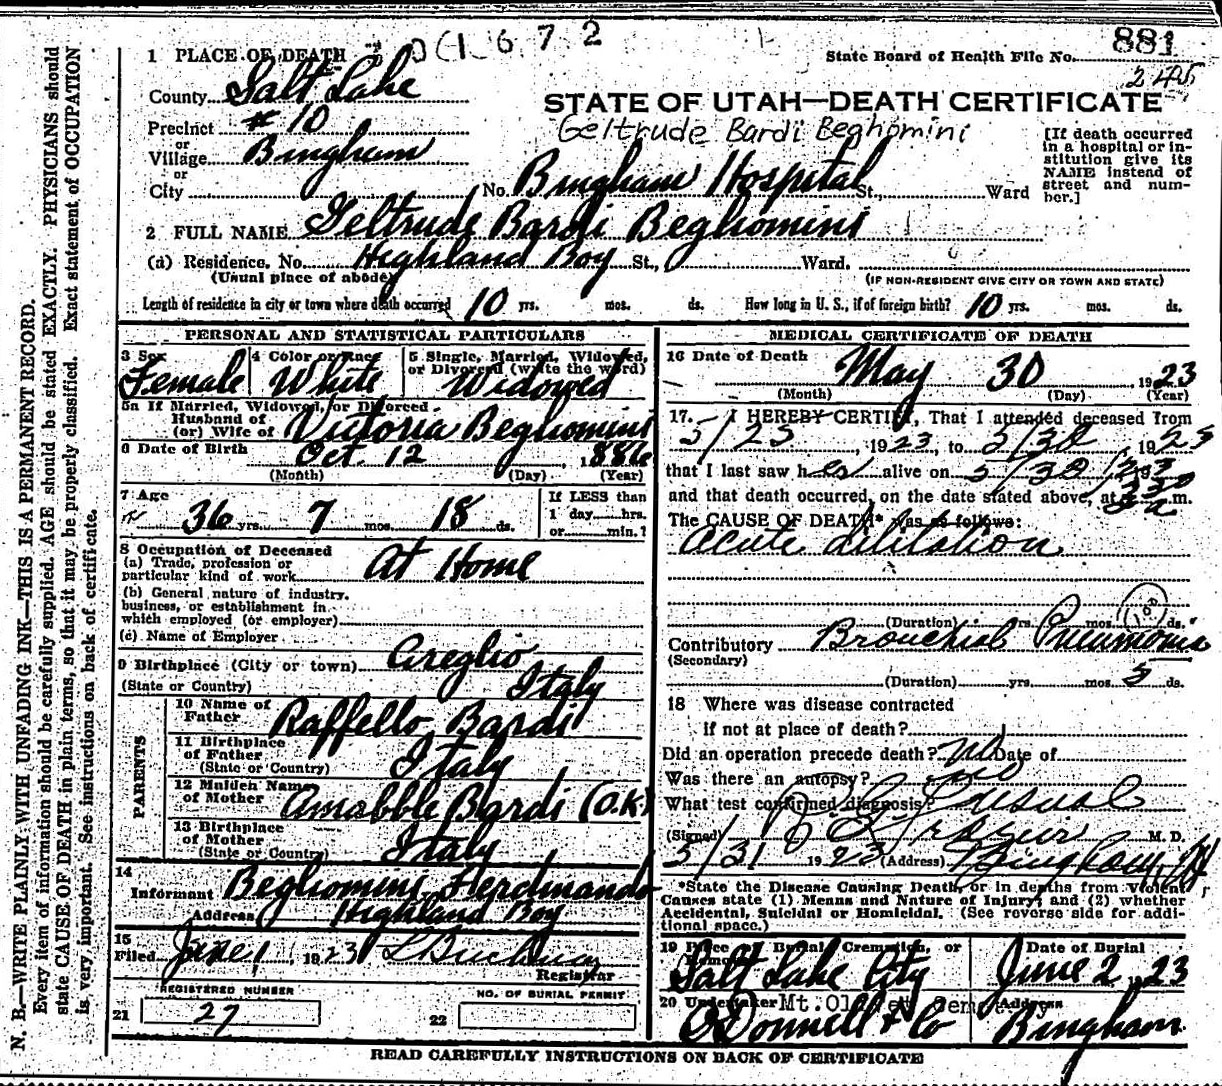 OCT 6 7 2
1 PLACE OF DEATH
State Board of Health File No. 881
245
County Salt Lake
STATE OF UTAH—DEATH CERTIFICATE
Geltrude Bardi Beghomini
Precinct # 10
or
Village Bingham
or
City No. Bingham Hospital St., Ward
[If death occurred
in a hospital or in-
stitution give its
NAME instead of
street and num-
ber.]
2 FULL NAME Geltrude Bardi Beghomini
(a) Residence. No. Highland Boy St., Ward.
(Usual place of abode) (IF NON-RESIDENT GIVE CITY OR TOWN AND STATE)
Length of residence in city or town where death occurred 10 yrs. mos. ds. How long in U. S., if of foreign birth? 10 yrs. mos. ds.
PERSONAL AND STATISTICAL PARTICULARS
3 Sex Female
4 Color or Race White
5 Single, Married, Widowed,
or Divorced (write the word)
Widowed
5a If Married, Widowed, or Divorced
Husband of
(or) Wife of Victoria Beghomini
6 Date of Birth Oct. 12, 1886
(Month) (Day) (Year)
7 Age
36 yrs. 7 mos. 18 ds.
If LESS than
1 day hrs.
or min.?
8 Occupation of Deceased
(a) Trade, profession or
particular kind of work At Home
(b) General nature of industry,
business, or establishment in
which employed (or employer)
(c) Name of Employer
9 Birthplace (City or town) Areglio
(State or Country) Italy
PARENTS
10 Name of
Father Raffello Bardi
11 Birthplace
of Father
(State or Country) Italy
12 Maiden Name
of Mother Amabble Bardi (O.K.)
13 Birthplace
of Mother
(State or Country) Italy
14
Informant Beghomini Ferdinando
Address Highland Boy
15
Filed June 1, 1923
Registrar
REGISTERED NUMBER
21 27
NO. OF BURIAL PERMIT
22
MEDICAL CERTIFICATE OF DEATH
16 Date of Death May 30, 1923
(Month) (Day) (Year)
17. I HEREBY CERTIFY, That I attended deceased from
5/25, 1923, to 5/30, 1923
that I last saw her alive on 5/30
and that death occurred, on the date stated above, at m.
The CAUSE OF DEATH* was as follows:
Acute dilitation
(Duration) yrs. mos. ds.
100
Contributory Bronchial Pneumonia
(Secondary)
(Duration) yrs. mos. 5 ds.
18 Where was disease contracted
if not at place of death?
Did an operation precede death? no Date of
Was there an autopsy? no
What test confirmed diagnosis? usual
(Signed) M. D.
5/31 1923 (Address) Bingham, Ut
*State the Disease Causing Death, or in deaths from Violent
Causes state (1) Means and Nature of Injury; and (2) whether
Accidental, Suicidal or Homicidal. (See reverse side for addi-
tional space.)
19 Place of Burial, Cremation, or
Removal
Salt Lake City
Date of Burial
June 2, 23
20 Undertaker Mt. Olivet Cemetery
O'Donnell & Co
Address
Bingham
READ CAREFULLY INSTRUCTIONS ON BACK OF CERTIFICATE
N. B.—WRITE PLAINLY WITH UNFADING INK—THIS IS A PERMANENT RECORD.
Every item of information should be carefully supplied. AGE should be stated EXACTLY. PHYSICIANS should
state CAUSE OF DEATH in plain terms, so that it may be properly classified. Exact statement of OCCUPATION
is very important. See instructions on back of certificate.